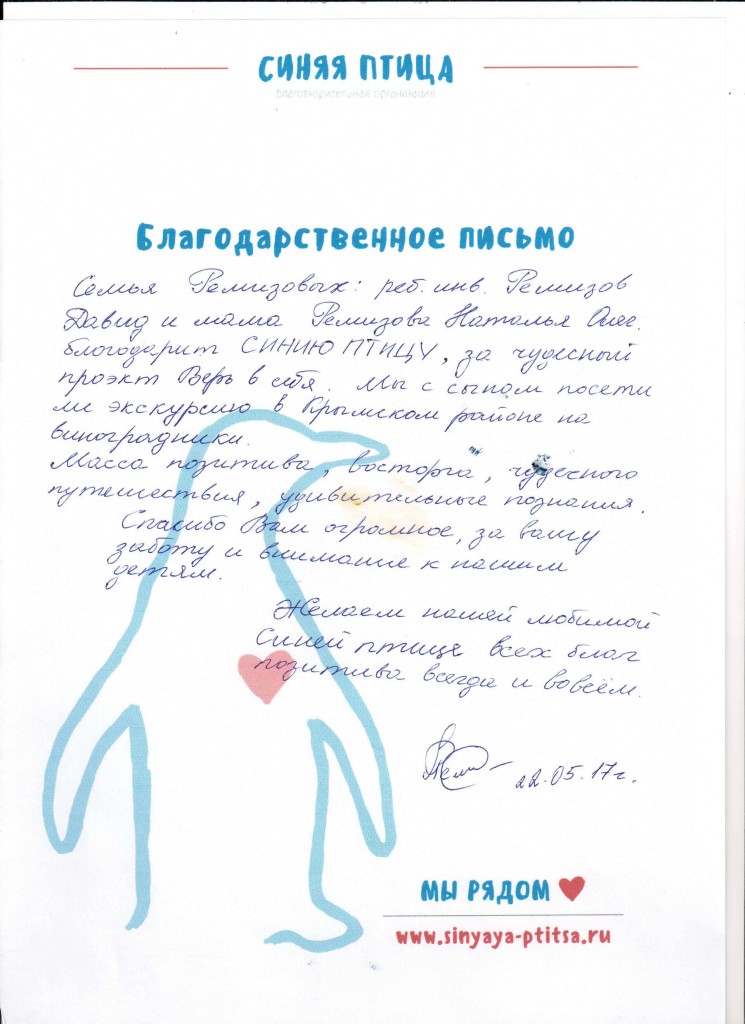 СИНЯЯ ПТИЦА
благотворительная организация
Благодарственное письмо
Семья Ремизовых: реб. инв. Ремизов
Давид и мама Ремизова Наталья Олег.
благодарит СИНИЮ ПТИЦУ, за чудесный
проэкт Верь в себя. Мы с сыном посети
ли экскурсию в Крымском районе на
виноградники.
Масса позитива, восторга, чудесного
путешествия, удивительные познания.
Спасибо Вам огромное, за вашу
заботу и внимание к нашим
детям.
Желаем нашей любимой
Синей птице всех благ
позитива всегда и во всём.
22.05.17г.
МЫ РЯДОМ
www.sinyaya-ptitsa.ru